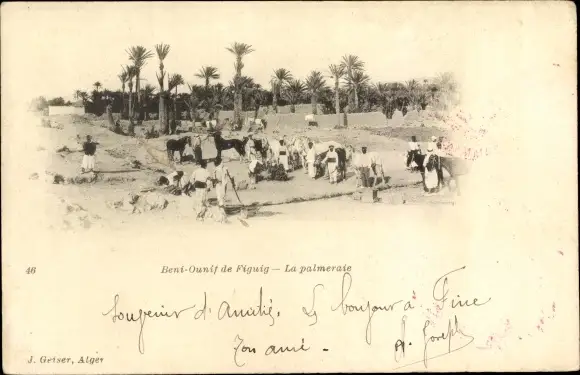 46 Beni-Ounif de Figuig — La palmeraie
Souvenir d'Amitié, bonjour à Fine
Ton ami - A. Joseph
J. Geiser, Alger